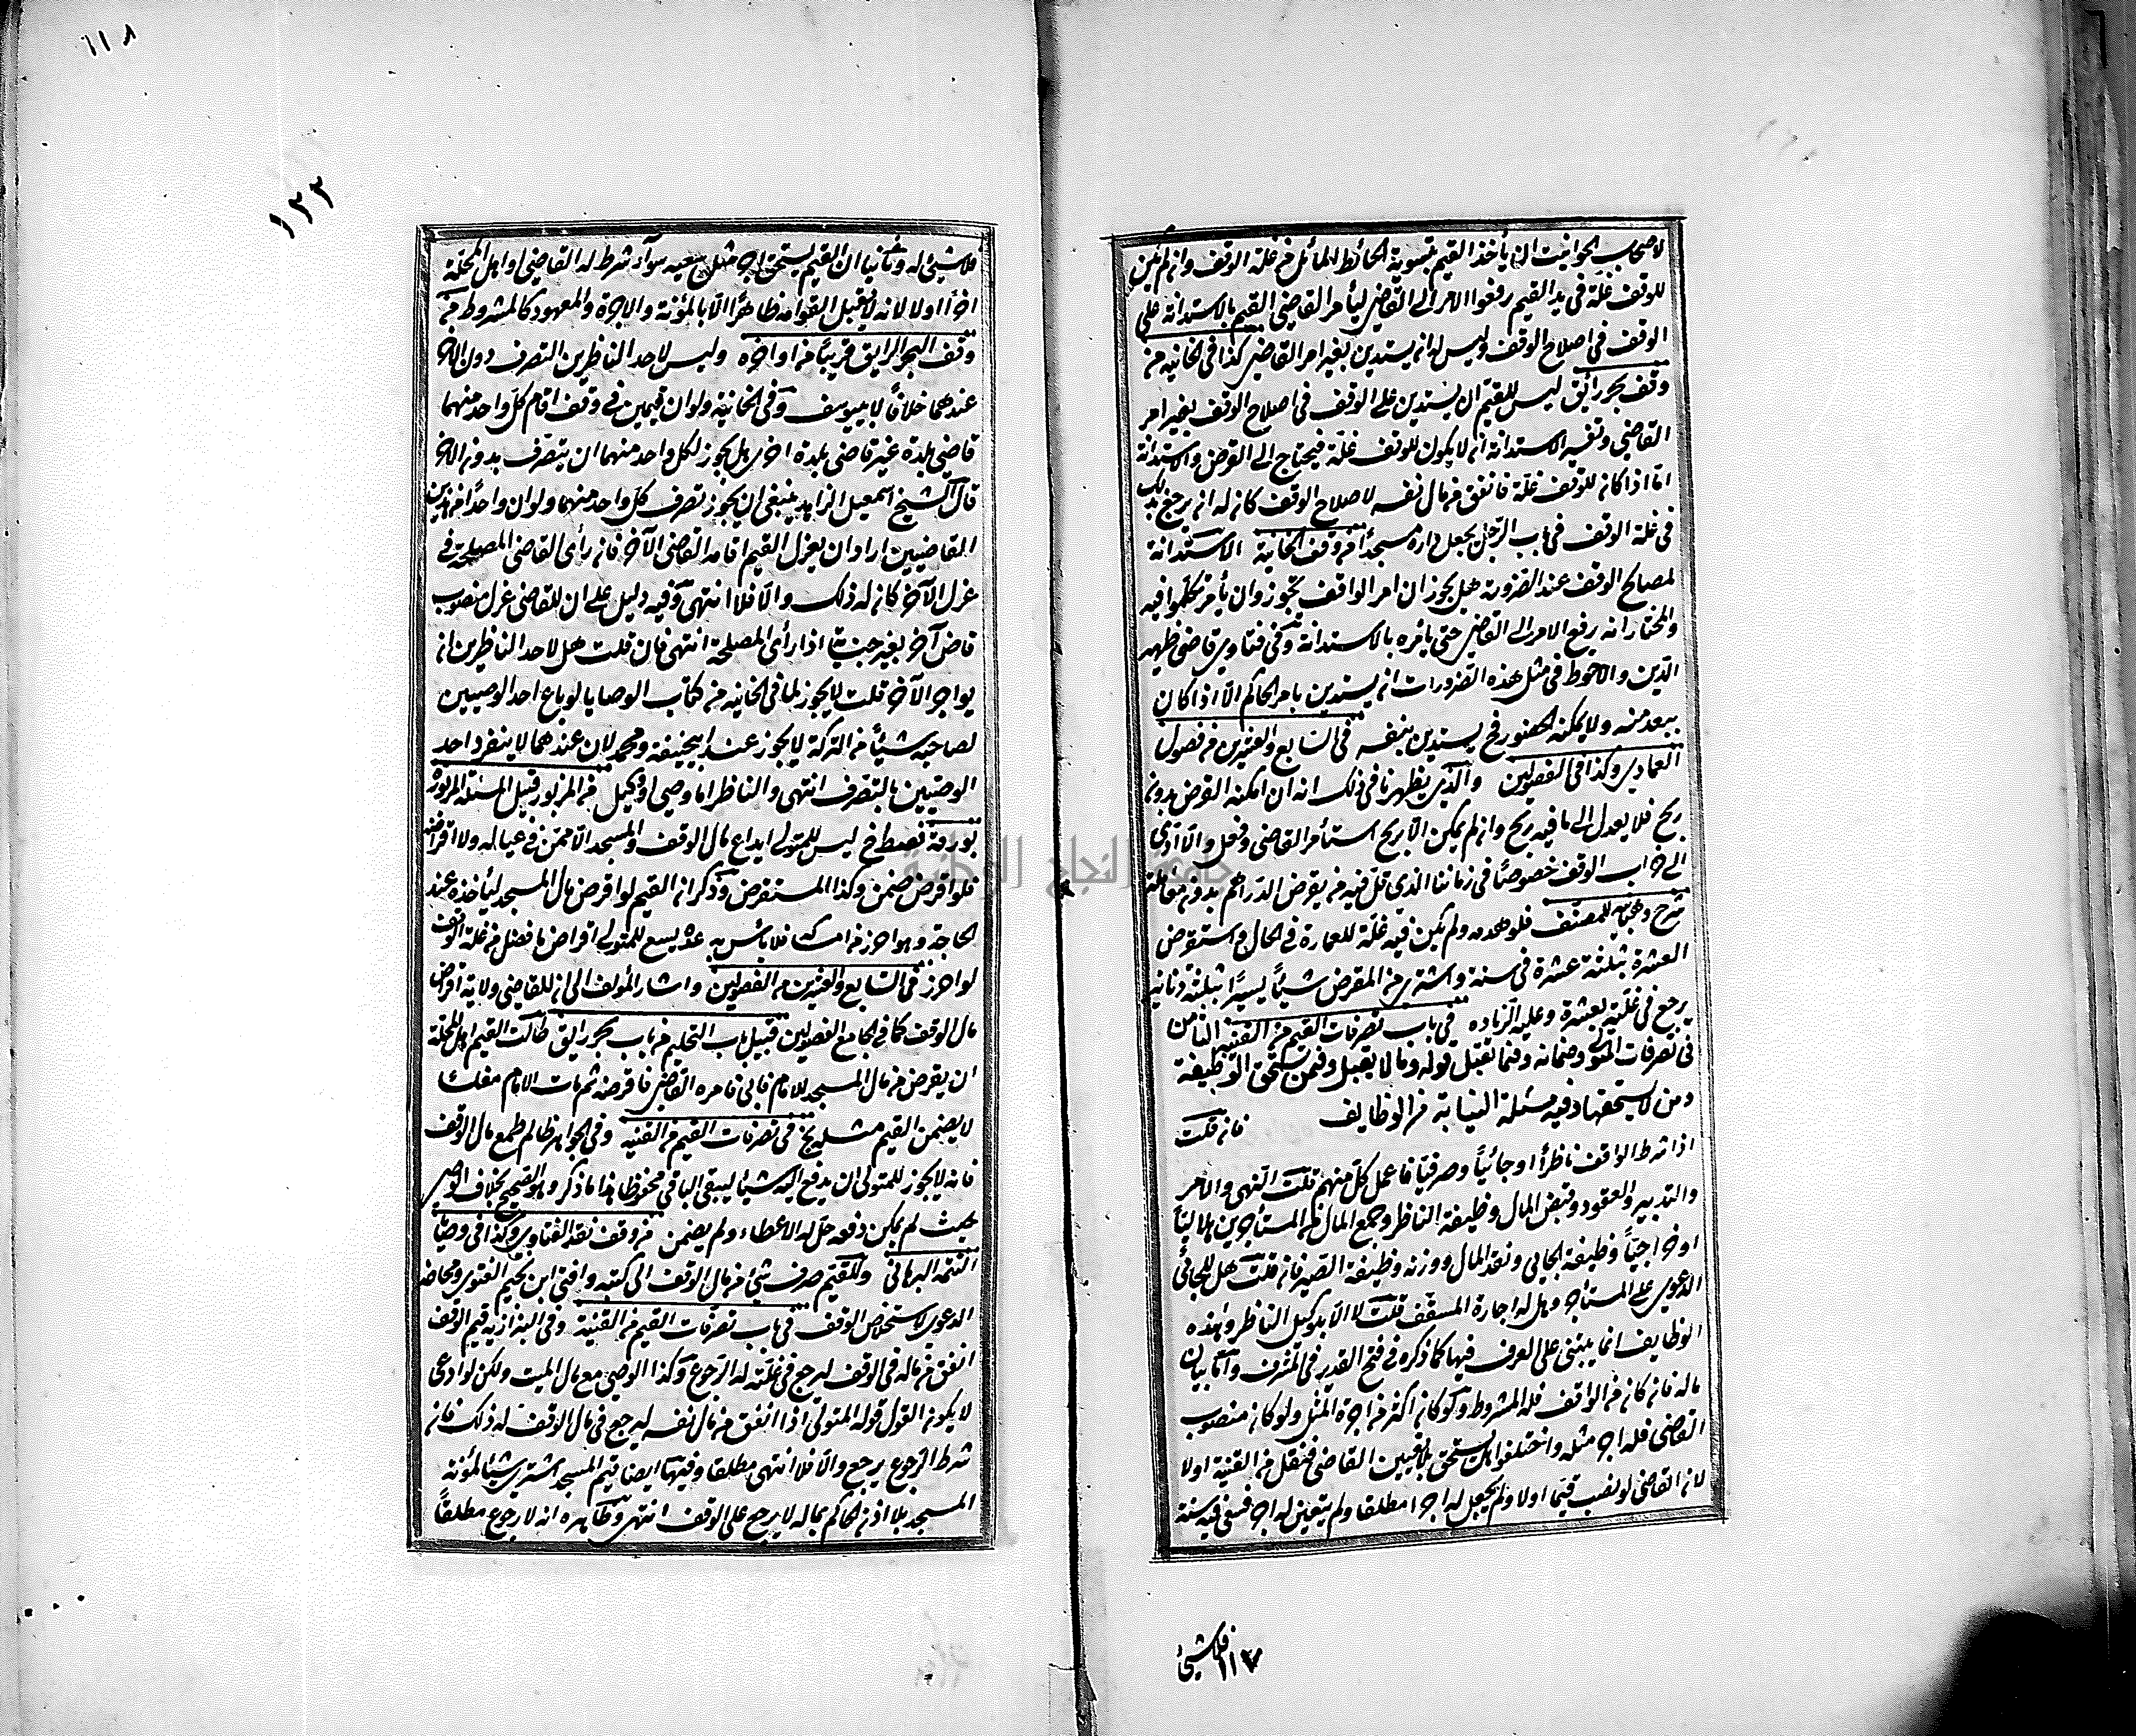 لاصحاب الحوانيت ان يأخذ القيم بتسوية الحائط المائل من غلة الوقف وان لم يكن
للوقف غلة في يد القيم رفعوا الامر الى القاضي ليأمر القاضي القيم بالاستدانة على
الوقف في اصلاح الوقف وليس له ان يستدين بغير امر القاضي كذا في الخانيه من
وقف بحر رائق ليس للقيم ان يستدين على الوقف في اصلاح الوقف بغير امر
القاضي وتفسير الاستدانة ان لا يكون للوقف غلة فيحتاج الى القرض والاستدانة
امّا اذا كان للوقف غلة فانفق من مال نفسه لاصلاح الوقف كان له ان يرجع بذلك
في غلة الوقف في باب الرجل يجعل داره مسجدا من وقف الخانية الاستدانة
لمصالح الوقف عند الضرورة هل يجوز ان امر الواقف تجوز وان لم يأمر تكلموا فيه
والمختار انه يرفع الامر الى القاضي حتى يأمره بالاستدانة وفي فتاوى قاضي ظهير
الدين والاحوط في مثل هذه الضرورات ان يستدين بامر الحاكم الّا اذا كان
يبعد منه ولا يمكنه الحضور فح يستدين بنفسه في السابع والعشرين من فصول
العمادي وكذا في الفصولين والذي يظهر نا في ذلك انه ان امكنه القرض بدون
ربح فلا يعدل الى ما فيه ربح وان لم يمكن الّا بربح استأمر القاضي وفعل والّا ادّى
الى خراب الوقف خصوصًا في زماننا الذي قل فيه من يقرض الدراهم بدون معاملة
شرح وهبانيه للمصنف فلو هدمه ولم يكن فيه غلة للعمارة في الحال واستقرض
العشرة بثلثة عشرة في سنة واشترى من المقرض شيئًا يسيرًا بثلثة دنانير
يرجع في غلته بعشرة وعليه الزياده في باب تصرفات القيم من القنيه الثامن
في تصرفات المتولي وضمانه وفيما تقبل قوله وما لا يقبل وفيمن يستحق الوظيفة
ومن لا يستحقها وفيه مسئلة النيابة من الوظايف فان قلت
اذا شرط الواقف ناظرًا او جابيًا وصرفيًا فما عمل كل منهم قلت النهي والامر
والتدبير والعقود وقبض المال وظيفة الناظر وجمع المال من المستأجرين هلاليًا
او خراجيًا وظيفة الجابي ونقد المال ووزنه وظيفة الصير فان قلت هل للجابي
الدعوى على المستأجر وهل له اجارة المسقف قلت لا الّا بتوكيل الناظر وهذه
الوظايف انما يبتني على العرف فيها كما ذكره في فتح القدير في المشرف وامّا بيان
ماله فان كان من الواقف فله المشروط ولو كان اكثر من اجرة المثل ولو كان منصوب
القاضي فله اجر مثله واختلفوا هل يستحق بلا تعيين القاضي فنقل من القنية اولا
لان القاضي لو نصب قيّما اولا ولم يجعل له اجرا مطلقا ولم يتعين له اجر فسعى فيه سنة
فلا شيئ
١١٧
١١٨
١٢٢
فلا شيئ له وثانيا ان القيم يستحق اجر مثل سعيه سوآء شرط له القاضي او اهل المحلة
اجرا اولا لانه لا يقبل القوامه ظاهرًا الّا بالمؤنة والاجرة والمعهود كالمشروط من
وقف البحر الرايق قريبًا من اواخره وليس لاحد الناظرين التصرف دون الاخر
عندهما خلافًا لابيوسف وفي الخانية ولو ان قيمين في وقف اقام كل واحد منهما
قاضي بلدة غير قاضي بلدة اخرى هل يجوز لكل واحد منهما ان يتصرف بدون الاخر
قال الشيخ اسمعيل الزاهد ينبغي ان يجوز تصرف كل واحد منهما ولو ان واحدًا من هذين
القاضيين اراد ان يعزل القيم اقامه القاضي الآخر فان رأى القاضي المصلحة في
عزل الآخر كان له ذلك والّا فلا انتهى وفيه دليل على ان للقاضي عزل منصوب
قاض آخر بغير جناية اذا رأى المصلحة انتهى فان قلت هل لاحد الناظرين ان
يواجر الآخر قلت لا يجوز لما في الخانيه من كتاب الوصايا لو باع احد الوصيين
لصاحبه شيئًا من التركة لا يجوز عند ابيحنيفة ومحمد لان عندهما لا ينفرد احد
الوصيين بالتصرف انتهى والناظر اما وصي او وكيل من المزبور قبيل المسئلة المزبورة
بورقة ليس للمتولي ايداع مال الوقف والمسجد الّا ممن في عياله ولا اقراضه
فلو اقرض ضمن وكذا المستقرض وذكر ان القيم لو اقرض مال المسجد ليأخذه عند
الحاجة وهو احرز من امساكه فلا بأس به عده يسع للمتولي اقراض ما فضل من غلة الوقف
لو احرز في السابع والعشرين من الفصولين واشار المؤلف الى ان للقاضي ولاية اقراض
مال الوقف كما في الجامع الفصولين قبيل باب التحكيم من باب بحر رايق طالب القيم اهل المحلة
ان يقرض من مال المسجد للامام فابى فامره القاضي فاقرضه ثم مات الامام مفلسا
لا يضمن القيم في تصرفات القيم من القنيه وفي الجواهر ظالم طمع مال الوقف
فانه لا يجوز للمتولي ان يدفع اليه شيئا ليبقى الباقي محفوظا هذا ما ذكر وهو الصحيح بخلاف الوصي
بحيث لم يمكن دفعه حلّ له الاعطاء ولم يضمن من وقف نقد الفتاوى وكذا في وصايا
التتمه البرهاني وللقيم صرف شئ من مال الوقف الى كتبه وافتى ابن نجيم الفتوى ومحاضر
الدعوى لاستخلاص الوقف في باب تصرفات القيم من القنية وفي البزازيه قيم الوقف
انفق من ماله في الوقف ليرجع في غلته له الرجوع وكذا الوصي مع مال الميت ولكن لو ادعى
لا يكون القول قوله المتولي اذا انفق من مال نفسه ليرجع في مال الوقف له ذلك فان
شرط الرجوع يرجع والّا فلا انتهى مطلقا وفيها ايضا قيم المسجد اشترى شيئا لمؤنة
المسجد بلا اذن الحاكم بماله لا يرجع على الوقف انتهى وظاهره انه لا رجوع مطلقًا